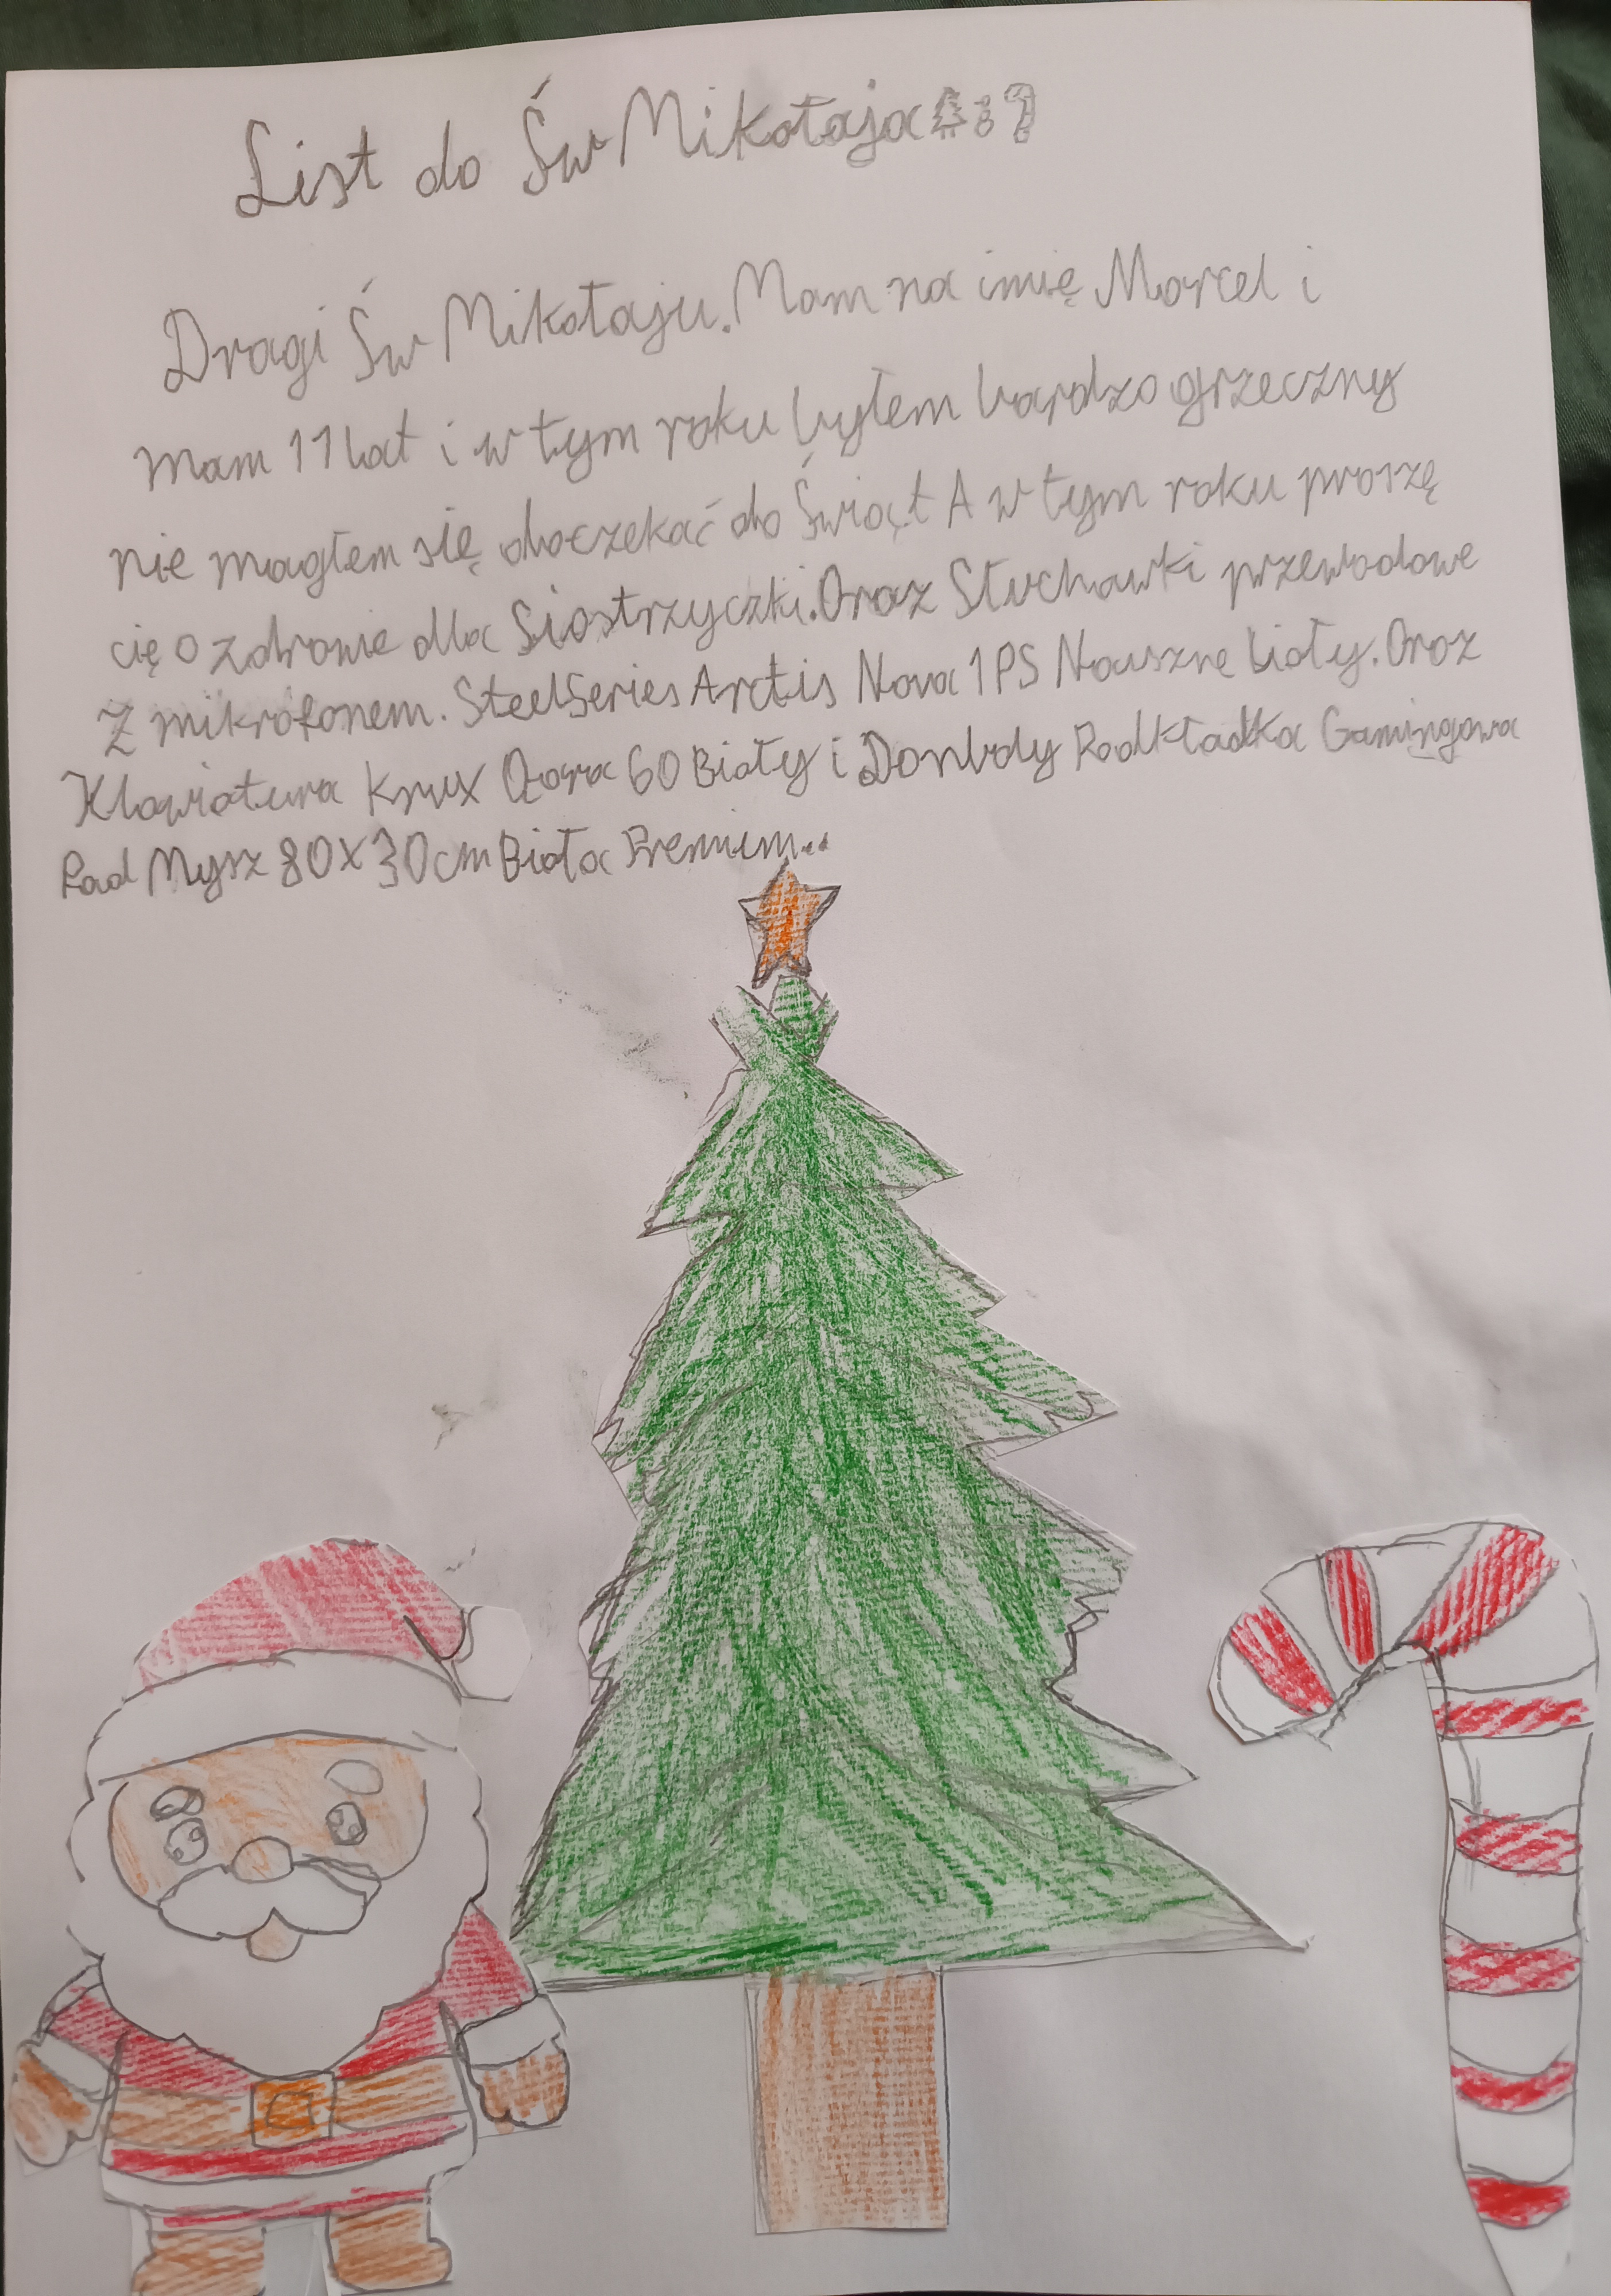 List do Św Mikołaja
Dragi Św Mikołaju. Mam na imię Marcel i
mam 11 lat i w tym roku byłem bardzo grzeczny
nie magłem się doczekać do Świąt A w tym roku proszę
cię o zdrowie dla Siostrzyczki. Oraz Słuchawki przewodowe
Z mikrofonem. SteelSeries Arctis Nova 1PS Nauszne biały. Oraz
Klawiatura Krux Qora 60 Biały i Donbdy Podkładka Gamingowa
Pad Mysz 80X30cm Biała Premium..